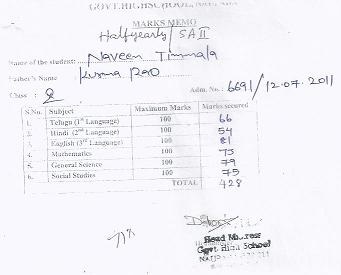 GOVT.HIGHSCHOOL,
MARKS MEMO
Halfyearly / SA II
Name of the student: Naveen Timmala
Father's Name Kurma Rao
Class : Adm. No.: 6691/12.07.2011
S.No. Subject Maximum Marks Marks secured
1. Telugu (1st Language) 100 66
2. Hindi (2nd Language) 100 54
3. English (3rd Language) 100 81
4. Mathematics 100 73
5. General Science 100 79
6. Social Studies 100 75
TOTAL 428
Head
Govt High School